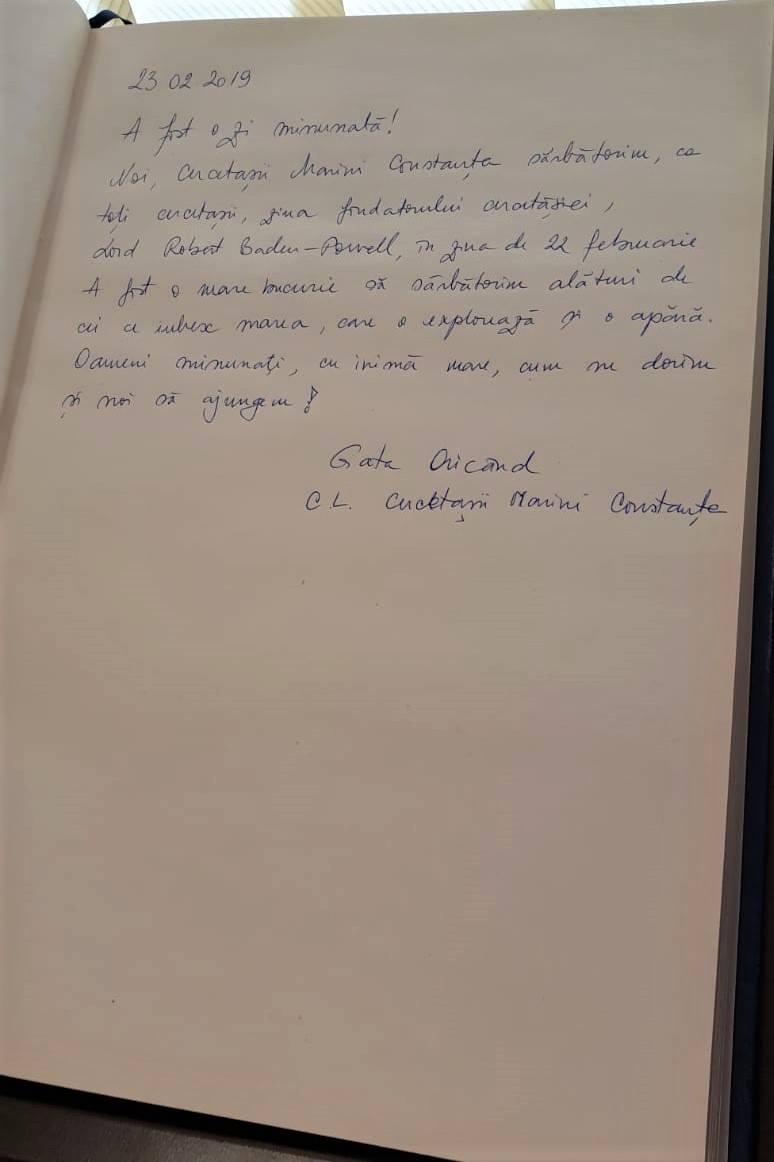 23 02 2019
A fost o zi minunată!
Noi, Cercetașii Marini Constanța sărbătorim, ca
toți cercetașii, ziua fondatorului cercetășiei,
Lord Robert Baden-Powell, în ziua de 22 februarie
A fost o mare bucurie să sărbătorim alături de
cei ce iubesc marea, care o explorează și o apără.
Oameni minunați, cu inimă mare, cum ne dorim
și noi să ajungem!
Gata Oricând
C.L. Cercetașii Marini Constanța